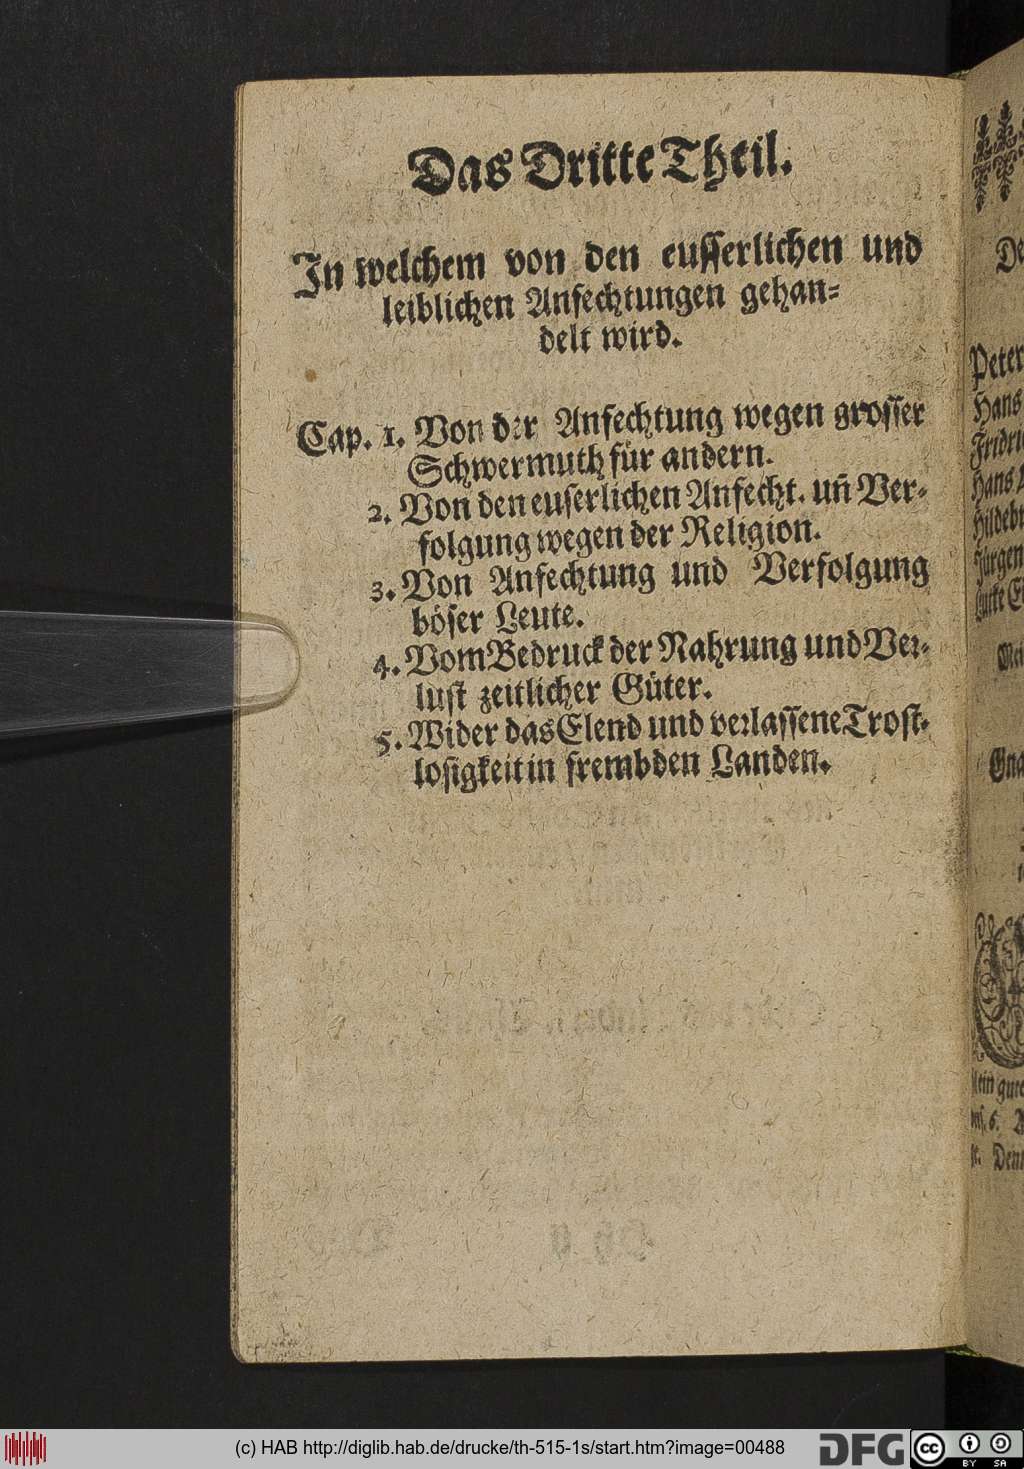 Das Dritte Theil.
In welchem von den eusserlichen und
leiblichen Anfechtungen gehan-
delt wird.
Cap. 1. Von der Anfechtung wegen grosser
Schwermuth für andern.
2. Von den euserlichen Anfecht. uñ Ver-
folgung wegen der Religion.
3. Von Anfechtung und Verfolgung
böser Leute.
4. Vom Bedruck der Nahrung und Ver-
lust zeitlicher Güter.
5. Wider das Elend und verlassene Trost-
losigkeit in frembden Landen.
De
Peter
Hans
Fridri
Hans
Hildebr
Jürgen
Gna
(c) HAB http://diglib.hab.de/drucke/th-515-1s/start.htm?image=00488
DFG
cc
BY SA